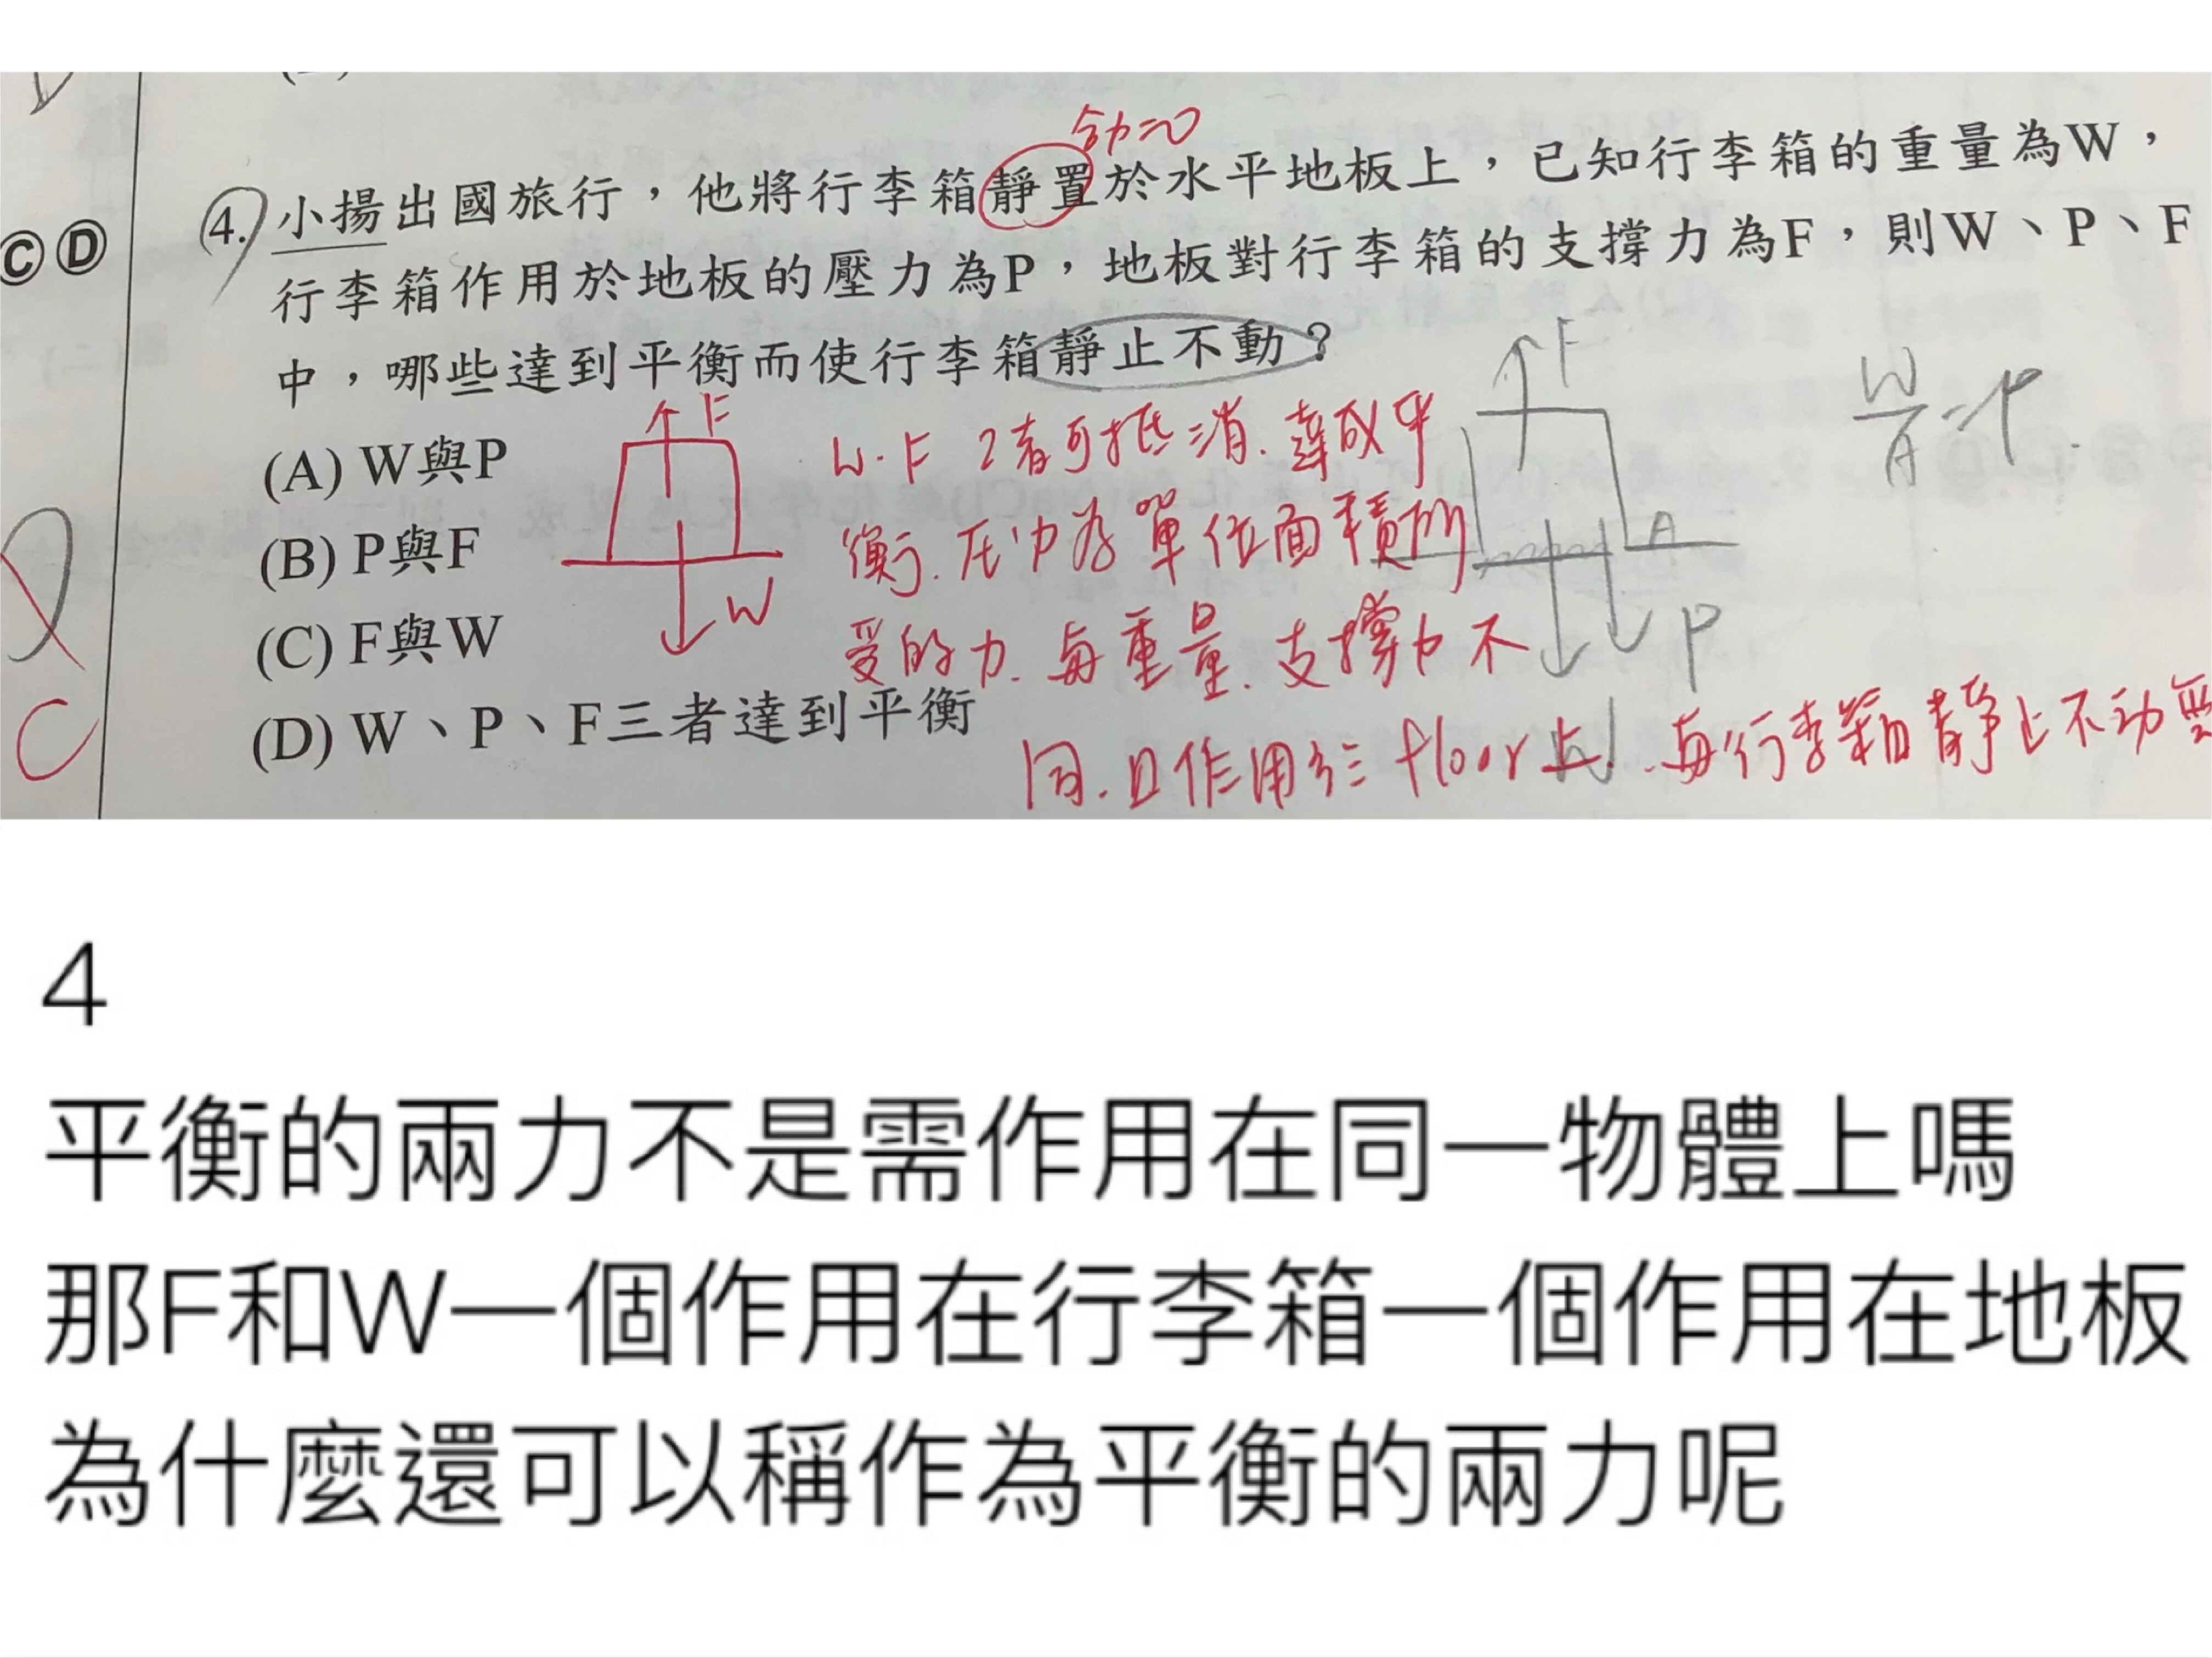 合力=0
4. 小揚出國旅行，他將行李箱靜置於水平地板上，已知行李箱的重量為W，
ⒸⒹ
行李箱作用於地板的壓力為P，地板對行李箱的支撐力為F，則W、P、F
中，哪些達到平衡而使行李箱靜止不動？
(A) W與P
(B) P與F
(C) F與W
(D) W、P、F三者達到平衡
F
W
W.F 2者可抵消.達成平
衡.壓力為單位面積所
受的力.與重量.支撐力不
同.且作用於floor上.與行李箱靜止不動無
F
A
P
W
W/A=P
C
4
平衡的兩力不是需作用在同一物體上嗎
那F和W一個作用在行李箱一個作用在地板
為什麼還可以稱作為平衡的兩力呢